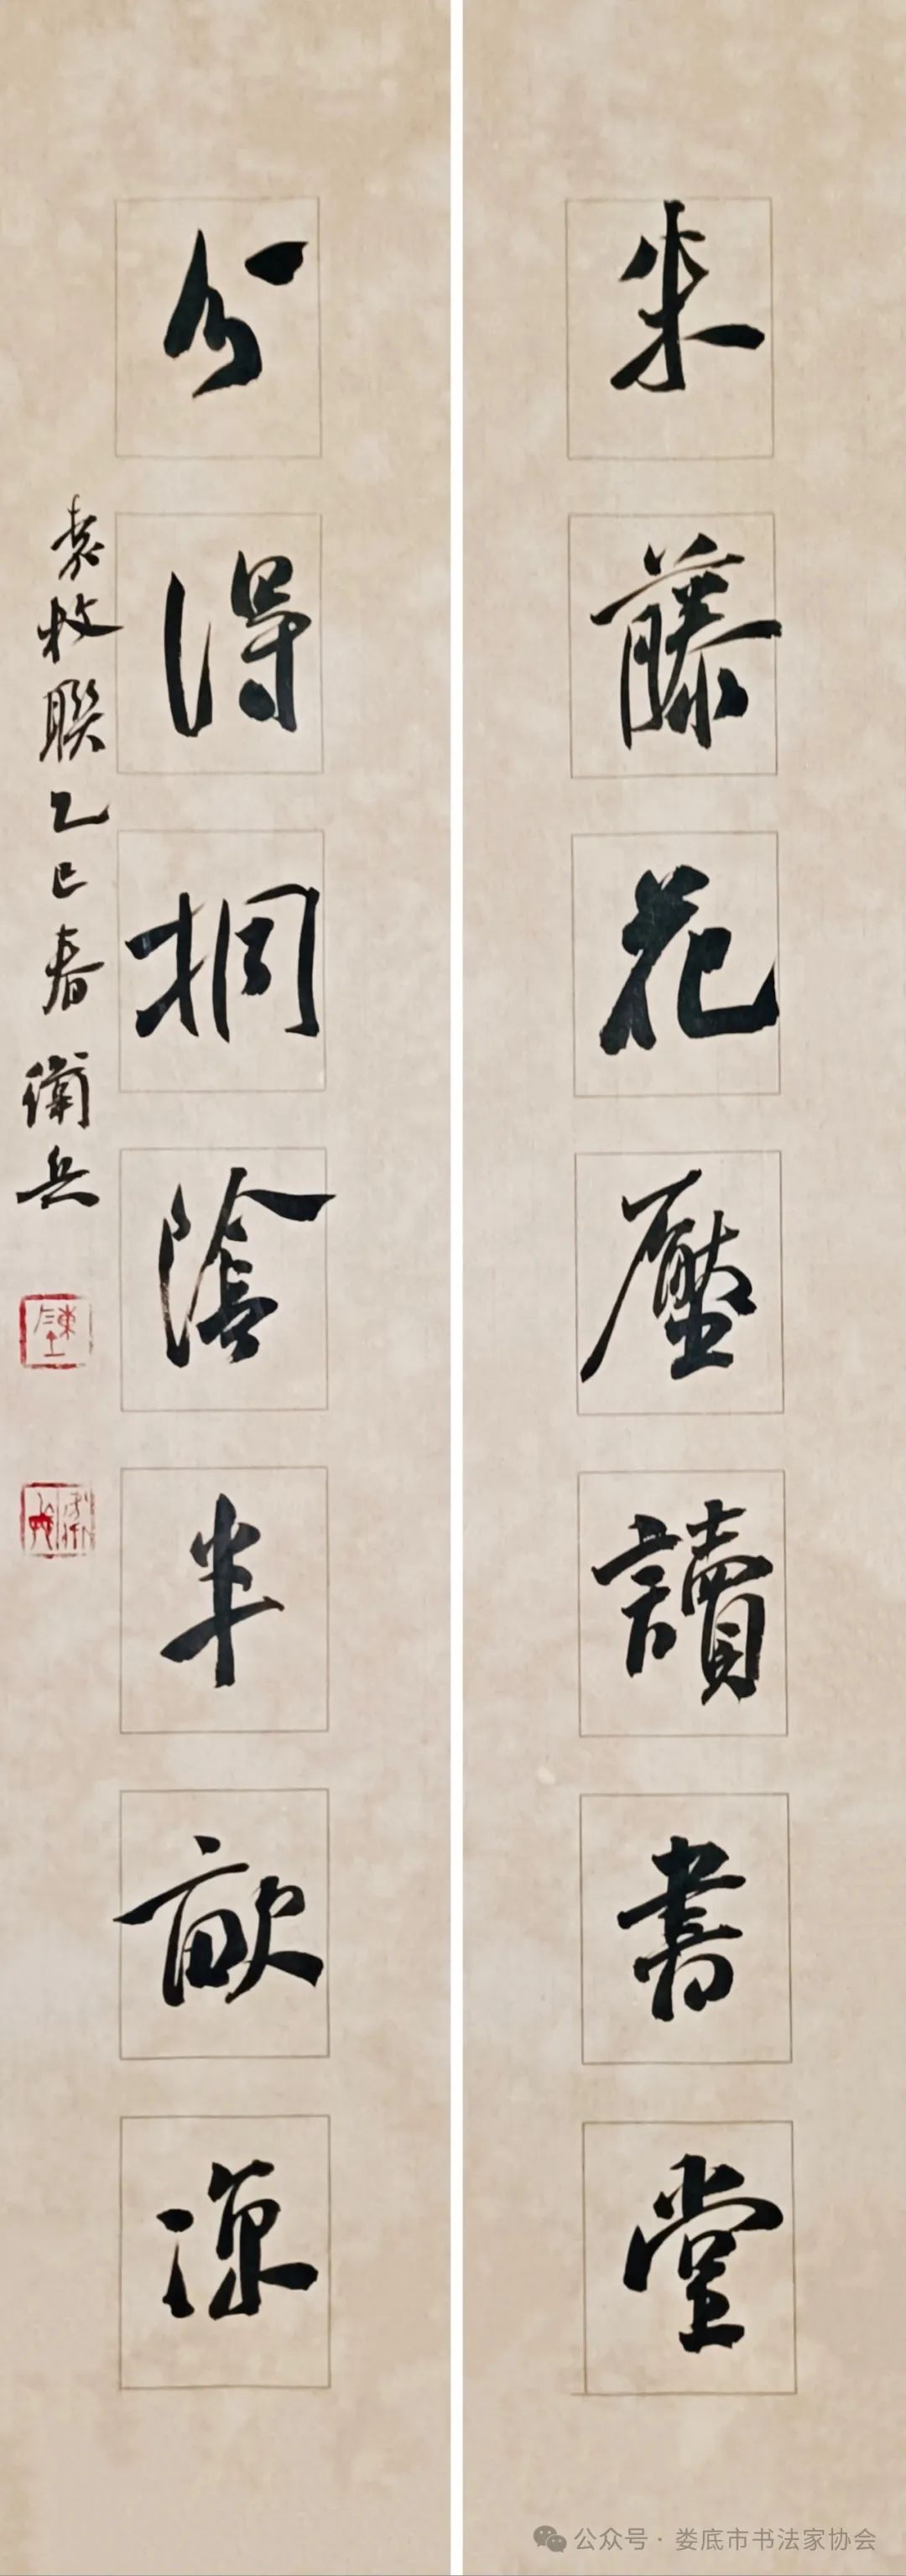 朱藤花壓讀書堂
分得桐陰半畝涼
袁枚聯乙巳春衛兵
公众号·娄底市书法家协会